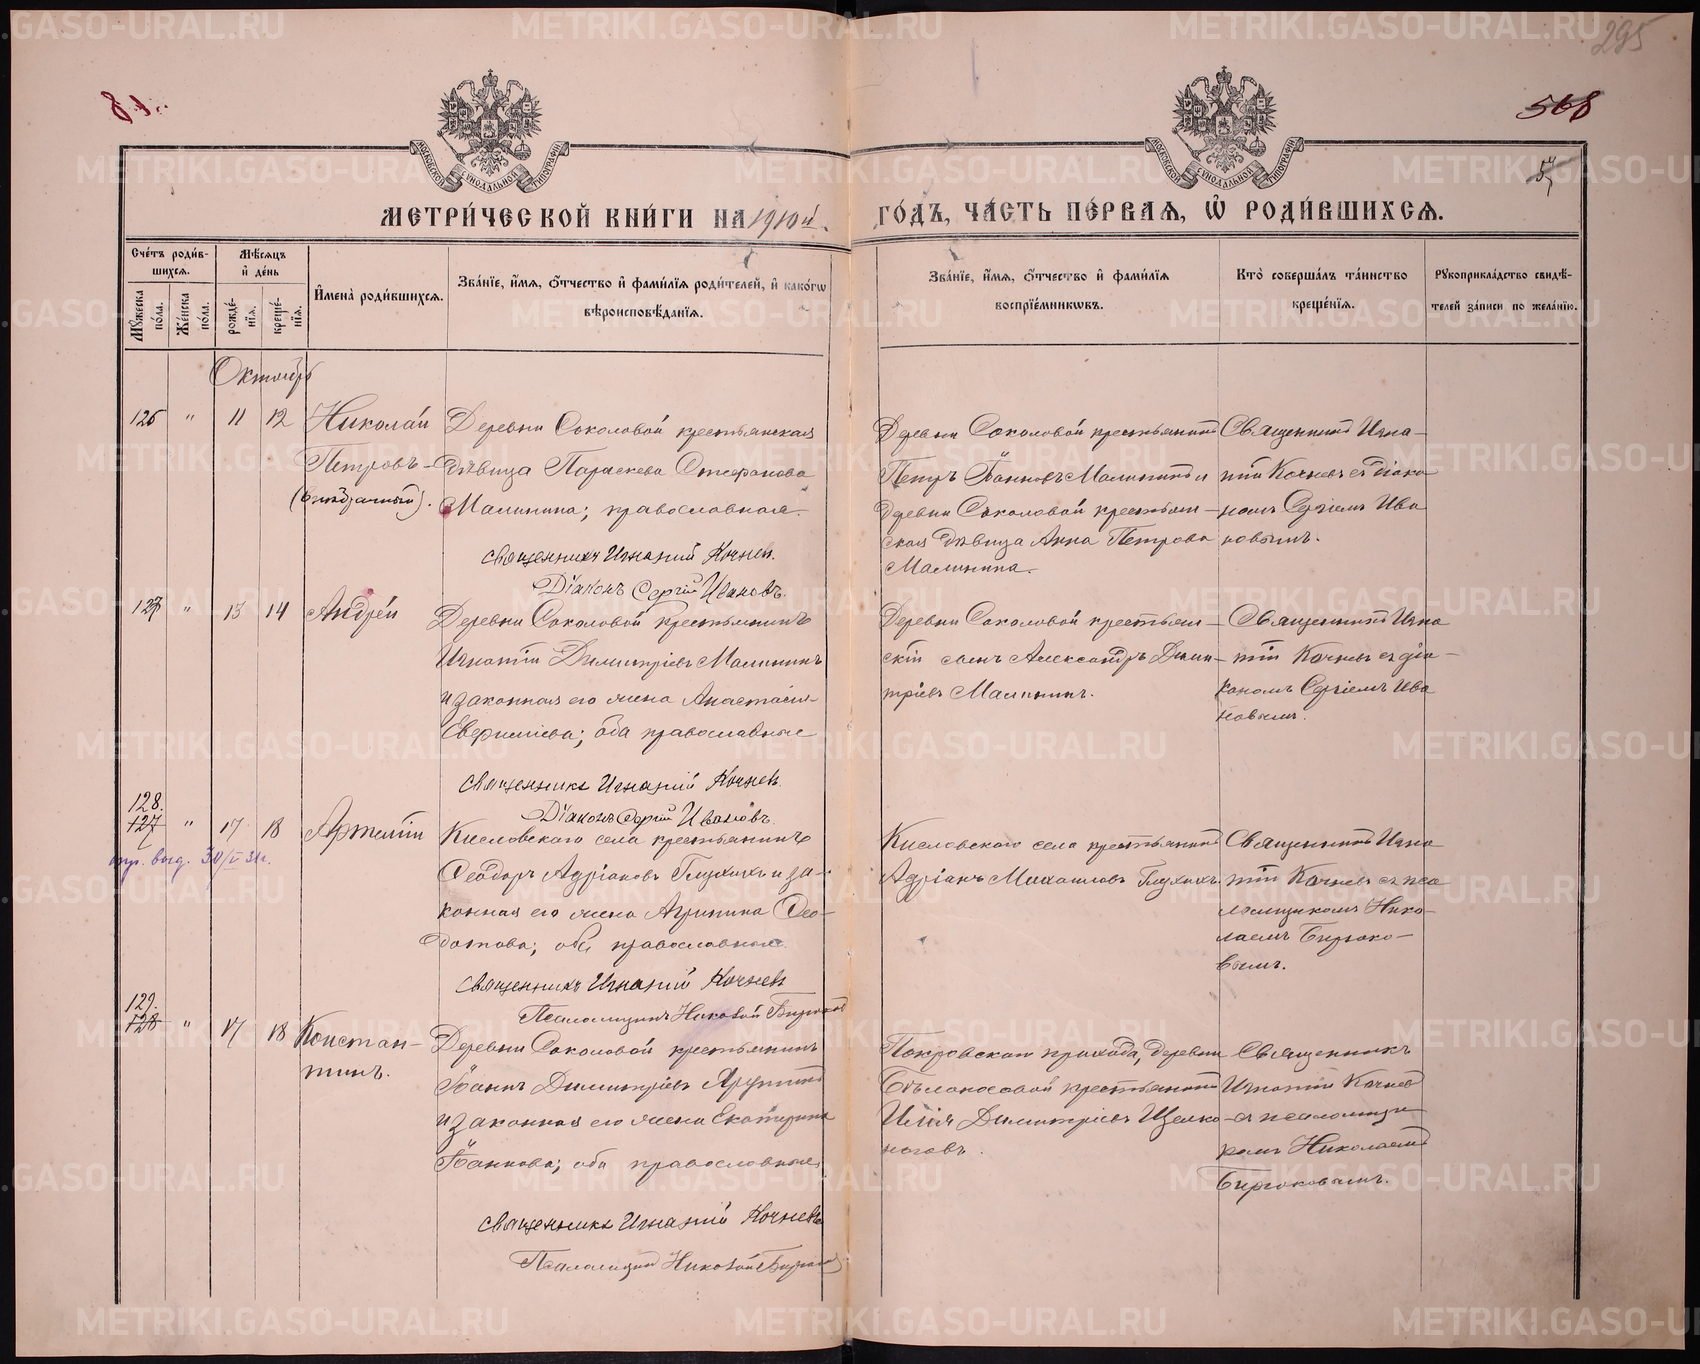 295
81.
568
МОСКОВСКОЙ СУНОДАЛЬНОЙ ТИПОГРАФІИ
МОСКОВСКОЙ СУНОДАЛЬНОЙ ТИПОГРАФІИ
МЕТРИ́ЧЕСКОЙ КНИ́ГИ НА 1910й
ГО́ДЪ, ЧА́СТЬ ПЕ́РВАЯ, Ѡ҆ РОДИ́ВШИХСЯ.
Сче́тъ роди́в-
шихся.
Мꙋ́жеска по́ла.
Же́нска по́ла.
Мѣ́сяцъ
и҆ де́нь
рожде́-
нїя.
креще́-
нїя.
И҆мена̀ роди́вшихся.
Зва́нїе, и҆́мя, ѻ҆́тчество и҆ фами́лїя роди́телей, и҆ како́гѡ
вѣроисповѣ́данїя.
Зва́нїе, и҆́мя, ѻ҆́тчество и҆ фами́лїя
воспрїе́мникѡвъ.
Кто̀ соверша́лъ та́инство
креще́нїя.
Рꙋкоприкла́дство свидѣ́-
телей за́писи по жела́нїю.
Октябрь
126 " 11 12 Николай
Петровъ
(внебрачный).
Деревни Соколовой крестьянская
дѣвица Параскева Стефанова
Малинина; православная.
Священникъ Игнатій Кочнев.
Діаконъ Сергій Ивановъ.
Деревни Соколовой крестьянинъ
Петръ Іоанновъ Малининъ и
деревни Соколовой крестьян-
ская дѣвица Анна Петрова
Малинина.
Священникъ Игна-
тій Кочневъ съ діако
номъ Сергіемъ Ива
новымъ.
127 " 13 14 Андрей
Деревни Соколовой крестьянинъ
Игнатій Димитріевъ Малининъ
и законная его жена Анастасія
Евфиміева; оба православные
Священникъ Игнатій Кочневъ.
Діаконъ Сергій Ивановъ.
Деревни Соколовой крестьян-
скій сынъ Александръ Дими-
тріевъ Малининъ.
Священникъ Игна
тій Кочневъ съ діа-
кономъ Сергіемъ Ива
новымъ.
128.
127 " 17 18 Артемій
выд. 30/V 31г.
Кисловскаго села крестьянинъ
Ѳеодоръ Адріановъ Глухихъ и за-
конная его жена Агрипина Ѳео-
дотова; оба православные.
Священникъ Игнатій Кочневъ
Псаломщикъ Николай Бирюков
Кисловскаго села крестьянинъ
Адріанъ Михаиловъ Глухихъ.
Священникъ Игна
тій Кочневъ съ пса
ломщикомъ Нико-
лаемъ Бирюко-
вымъ.
129.
128 " 17 18 Констан-
тинъ.
Деревни Соколовой крестьянинъ
Іоаннъ Димитріевъ
и законная его жена Екатерина
Іоаннова; оба православные
Священникъ Игнатій Кочневъ
Псаломщикъ Николай Бирюков
Покровскаго прихода, деревни
Бѣлоносовой крестьянинъ
Илія Димитріевъ Щелко
ноговъ.
Священникъ
Игнатій Кочнев
съ псаломщи
комъ Николаемъ
Бирюковымъ.
METRIKI.GASO-URAL.RU